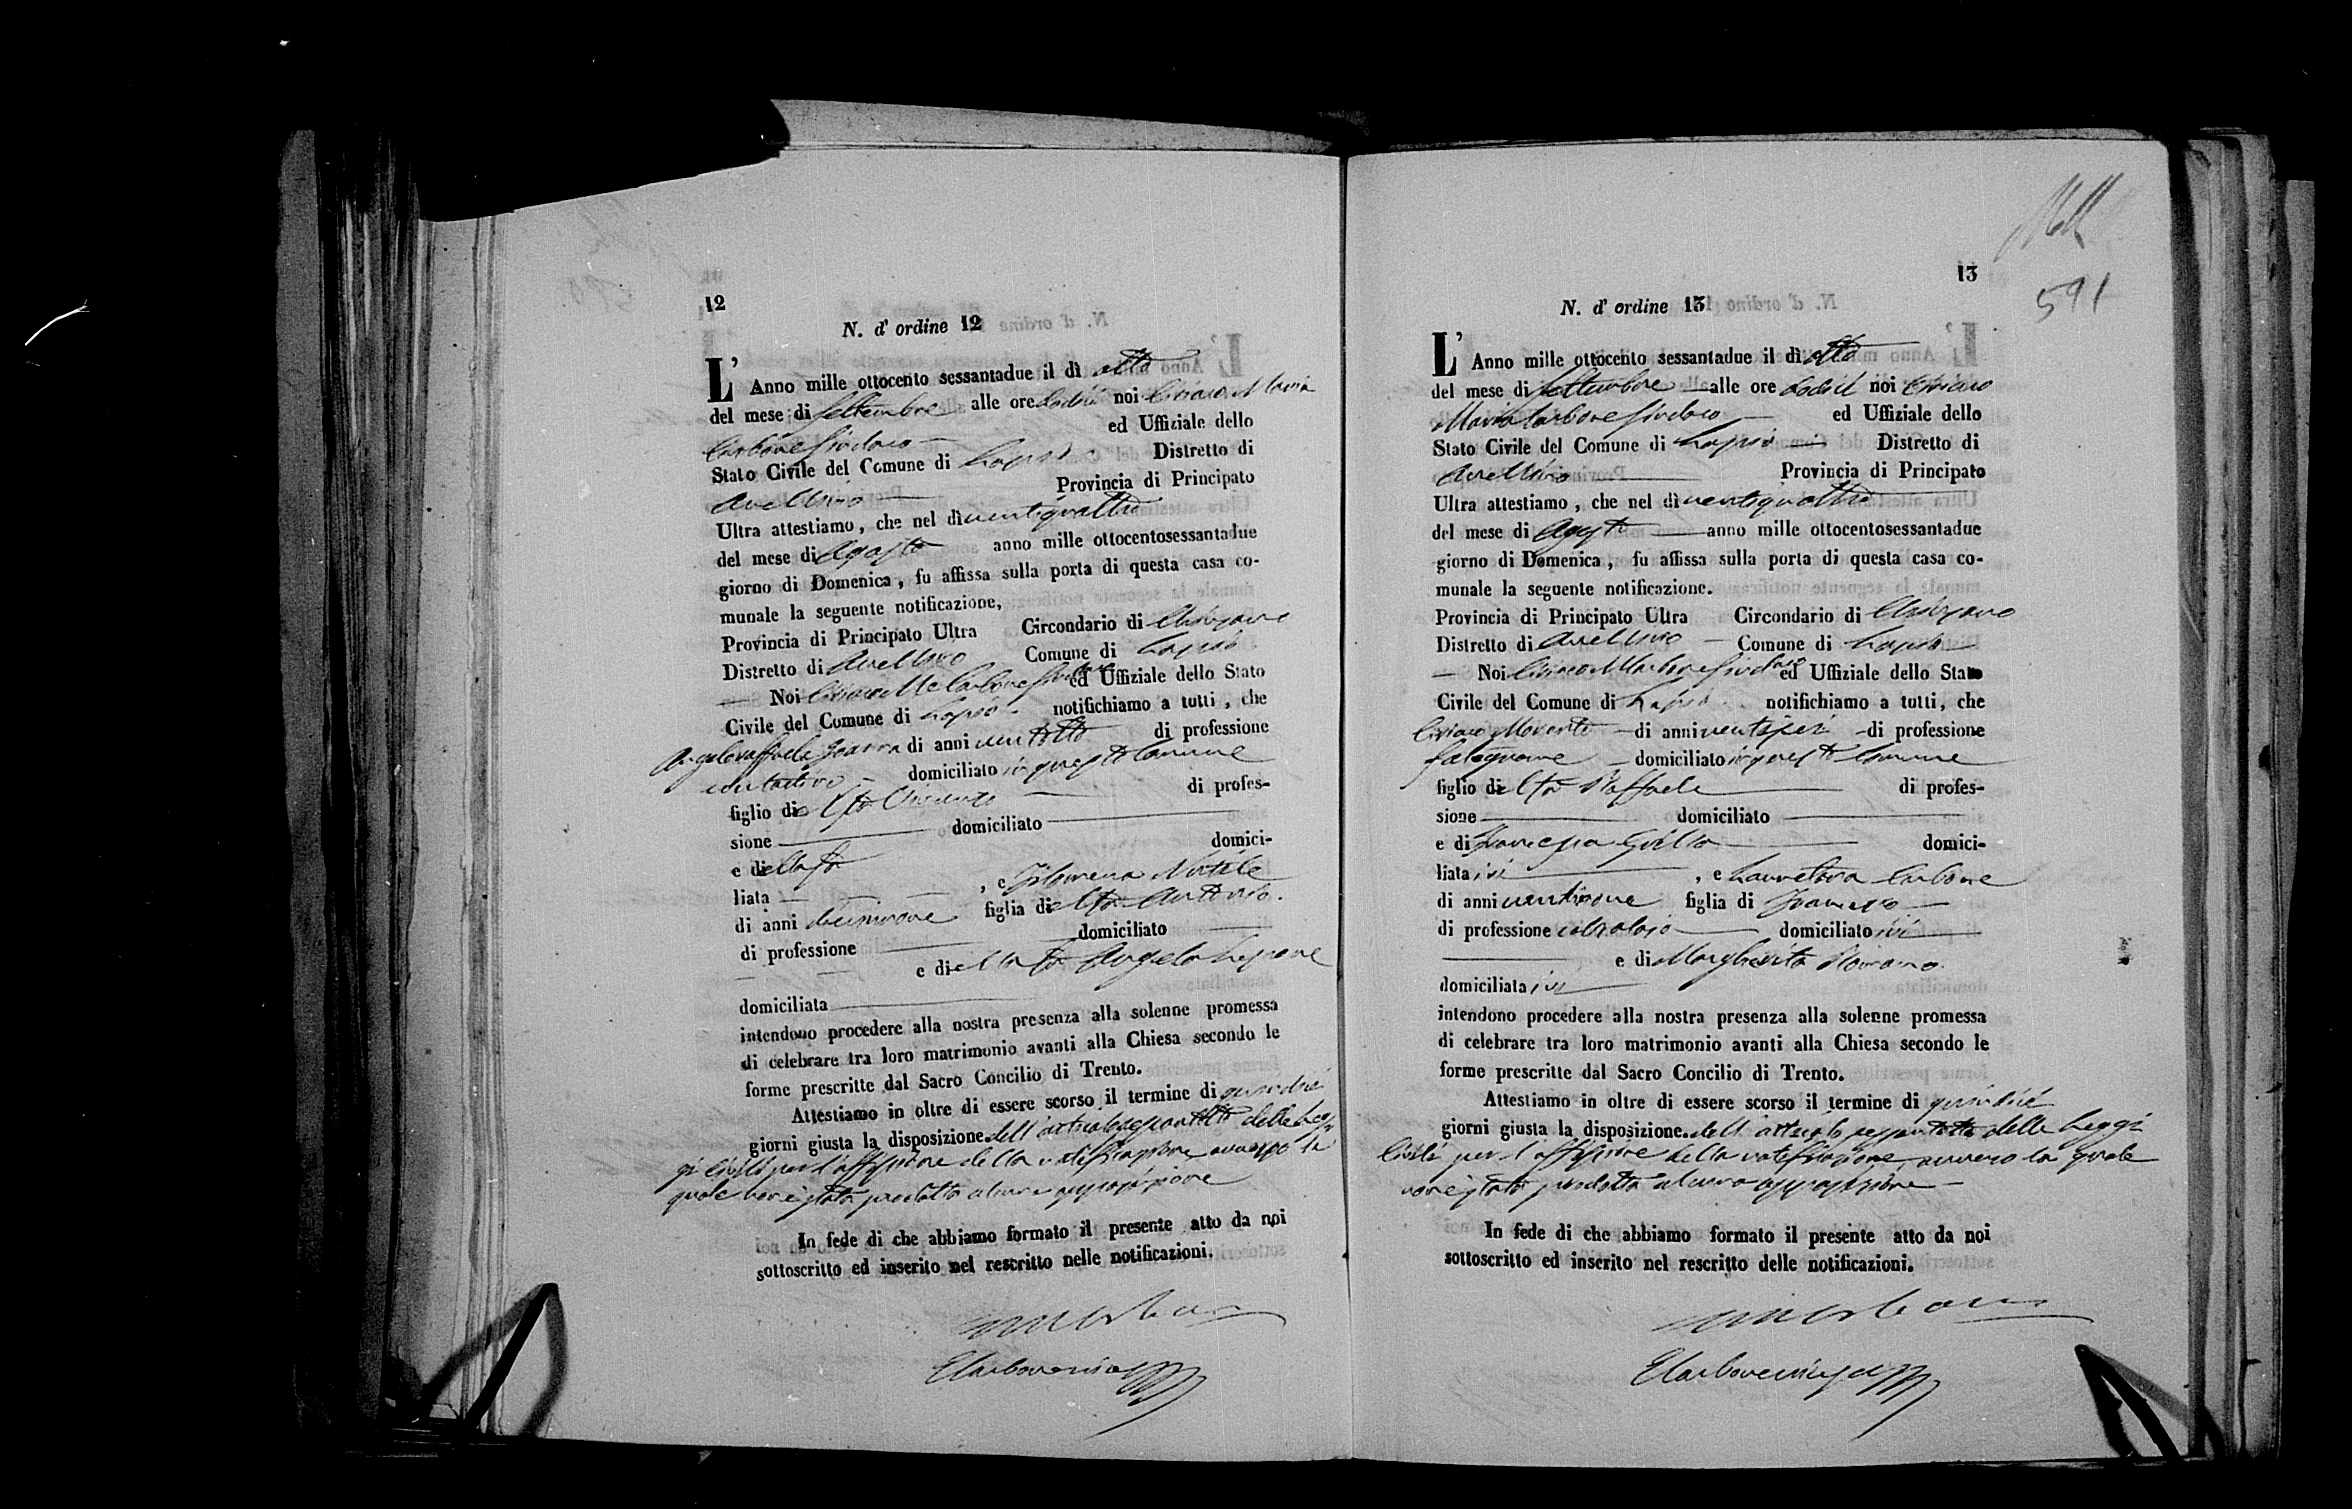 12
N. d' ordine 12
L' Anno mille ottocento sessantadue il dì otto
del mese di Settembre alle ore dodici noi Ciriaco Maria
Carbone Sindaco ed Uffiziale dello
Stato Civile del Comune di Lapio Distretto di
Avellino Provincia di Principato
Ultra attestiamo, che nel dì ventiquattro
del mese di Agosto anno mille ottocentosessantadue
giorno di Domenica, fu affissa sulla porta di questa casa co-
munale la seguente notificazione,
Provincia di Principato Ultra Circondario di Chiusano
Distretto di Avellino Comune di Lapio
Noi Ciriaco Ma Carbone Sindaco ed Uffiziale dello Stato
Civile del Comune di Lapio notifichiamo a tutti, che
Angeloraffaele di anni ventotto di professione
domiciliato in questo Comune
figlio di el fu di profes-
sione domiciliato
e di ella fu domici-
liata , e Filomena
di anni diecinove figlia di el fu Antonio.
di professione domiciliato
e di ella fu Angela
domiciliata
intendono procedere alla nostra presenza alla solenne promessa
di celebrare tra loro matrimonio avanti alla Chiesa secondo le
forme prescritte dal Sacro Concilio di Trento.
Attestiamo in oltre di essere scorso il termine di quindici
giorni giusta la disposizione dell'articolo sessantotto delle Leg-
gi Civili per l'affissione della notificazione avverso la
quale non è stata prodotta alcuna opposizione
In fede di che abbiamo formato il presente atto da noi
sottoscritto ed inserito nel rescritto nelle notificazioni.
13
591
N. d' ordine 13
L' Anno mille ottocento sessantadue il dì otto
del mese di Settembre alle ore dodici noi Ciriaco
Maria Carbone Sindaco ed Uffiziale dello
Stato Civile del Comune di Lapio Distretto di
Avellino Provincia di Principato
Ultra attestiamo, che nel dì ventiquattro
del mese di Agosto anno mille ottocentosessantadue
giorno di Domenica, fu affissa sulla porta di questa casa co-
munale la seguente notificazione.
Provincia di Principato Ultra Circondario di Chiusano
Distretto di Avellino Comune di Lapio
Noi Ciriaco Ma Carbone Sindaco ed Uffiziale dello Stato
Civile del Comune di Lapio notifichiamo a tutti, che
Ciriaco Morante di anni ventisei di professione
falegname domiciliato in questo Comune
figlio di el fu Raffaele di profes-
sione domiciliato
e di Francesca domici-
liata ivi , e Lauretana Carbone
di anni ventinove figlia di Francesco
di professione calzolaio domiciliato ivi
e di Margherita Romano.
domiciliata ivi
intendono procedere alla nostra presenza alla solenne promessa
di celebrare tra loro matrimonio avanti alla Chiesa secondo le
forme prescritte dal Sacro Concilio di Trento.
Attestiamo in oltre di essere scorso il termine di quindici
giorni giusta la disposizione dell'articolo sessantotto delle Leggi
Civili per l'affissione della notificazione avverso la quale
non è stata prodotta alcuna opposizione
In fede di che abbiamo formato il presente atto da noi
sottoscritto ed inserito nel rescritto delle notificazioni.